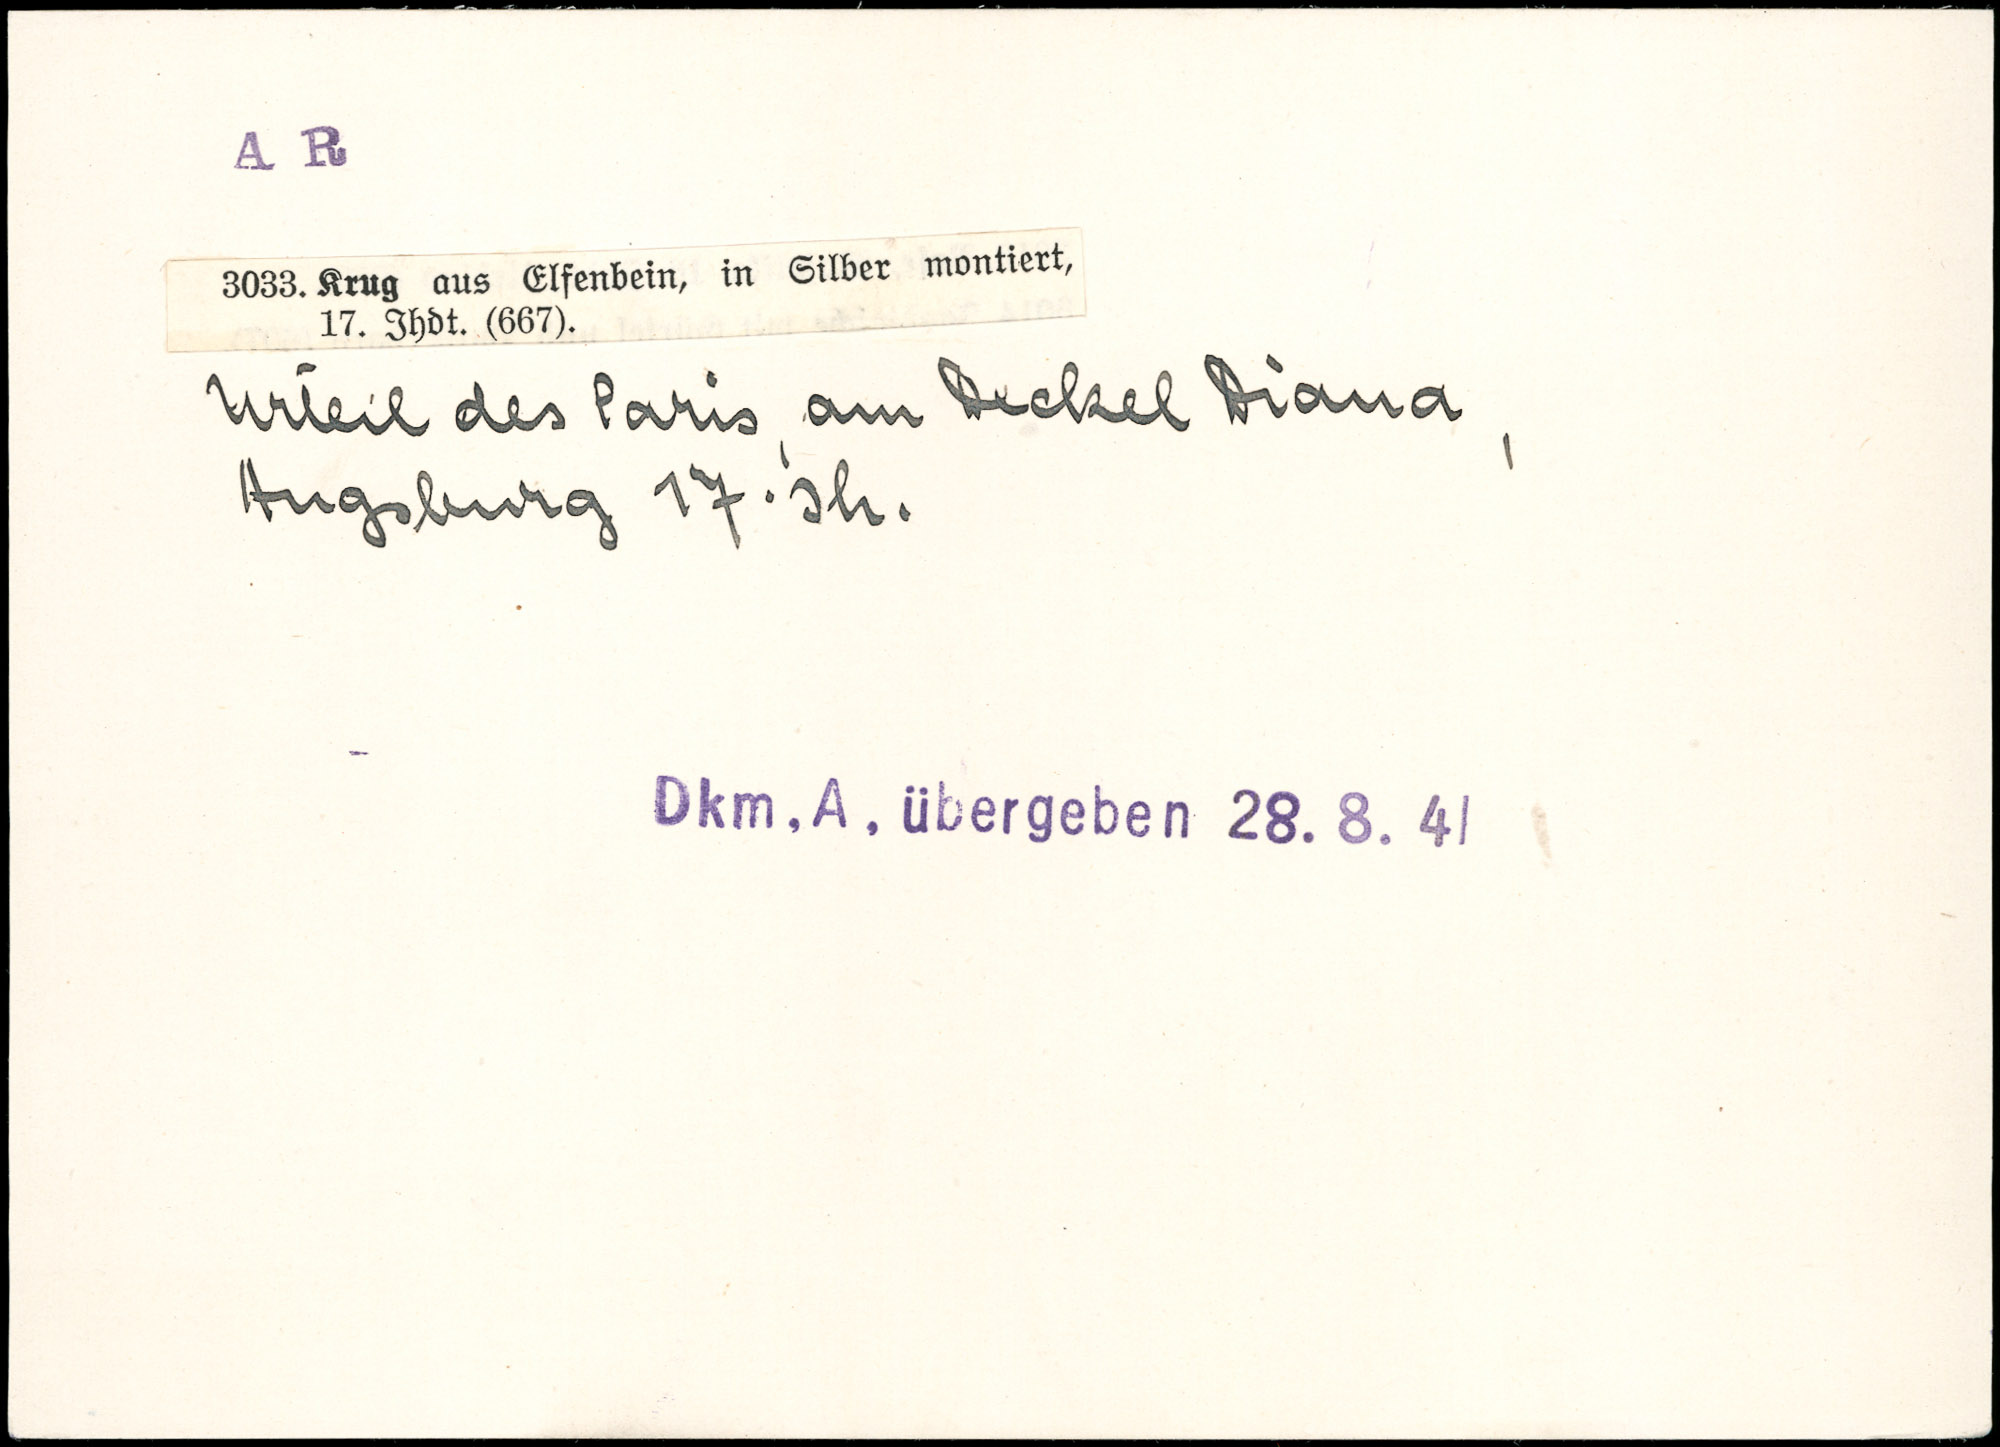 A R
3033. Krug aus Elfenbein, in Silber montiert,
17. Jhdt. (667).
Urteil des Paris, am Deckel Diana,
Augsburg 17. Jh.
Dkm. A. übergeben 28. 8. 41